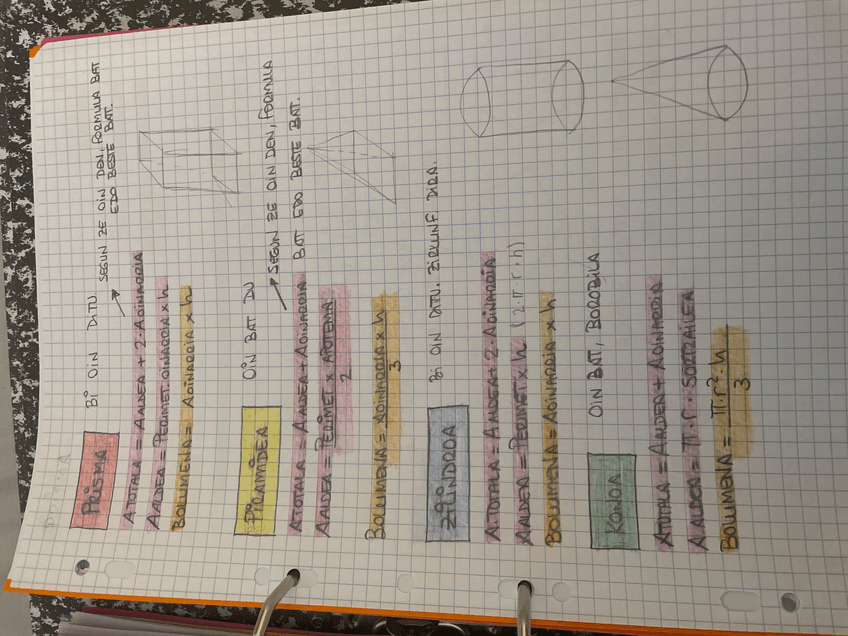 PRISMA BI OIN DITU.
SEGUN ZE OIN DEN, FORMULA BAT
EDO BESTE BAT.
ATOTALA = AALDEA + 2·AOINARRIA
AALDEA = PERIMET. OINARRIA x h
BOLUMENA = AOINARRIA x h
PIRAMIDEA OIN BAT DU
SEGUN ZE OIN DEN, FORMULA
BAT EDO BESTE BAT.
ATOTALA = AALDEA + AOINARRIA
AALDEA = PERIMET x APOTEMA
2
BOLUMENA = AOINARRIA x h
3
ZILINDROA BI OIN DITU. ZIRKUNF DIRA.
A.TOTALA = AALDEA + 2·AOINARRIA
AALDEA = PERIMET x h (2·π·r·h)
BOLUMENA = AOINARRIA x h
KONOA OIN BAT, BOROBILA
ATOTALA = AALDEA + AOINARRIA
AALDEA = π·r·SORTZAILEA
BOLUMENA = π·r²·h
3